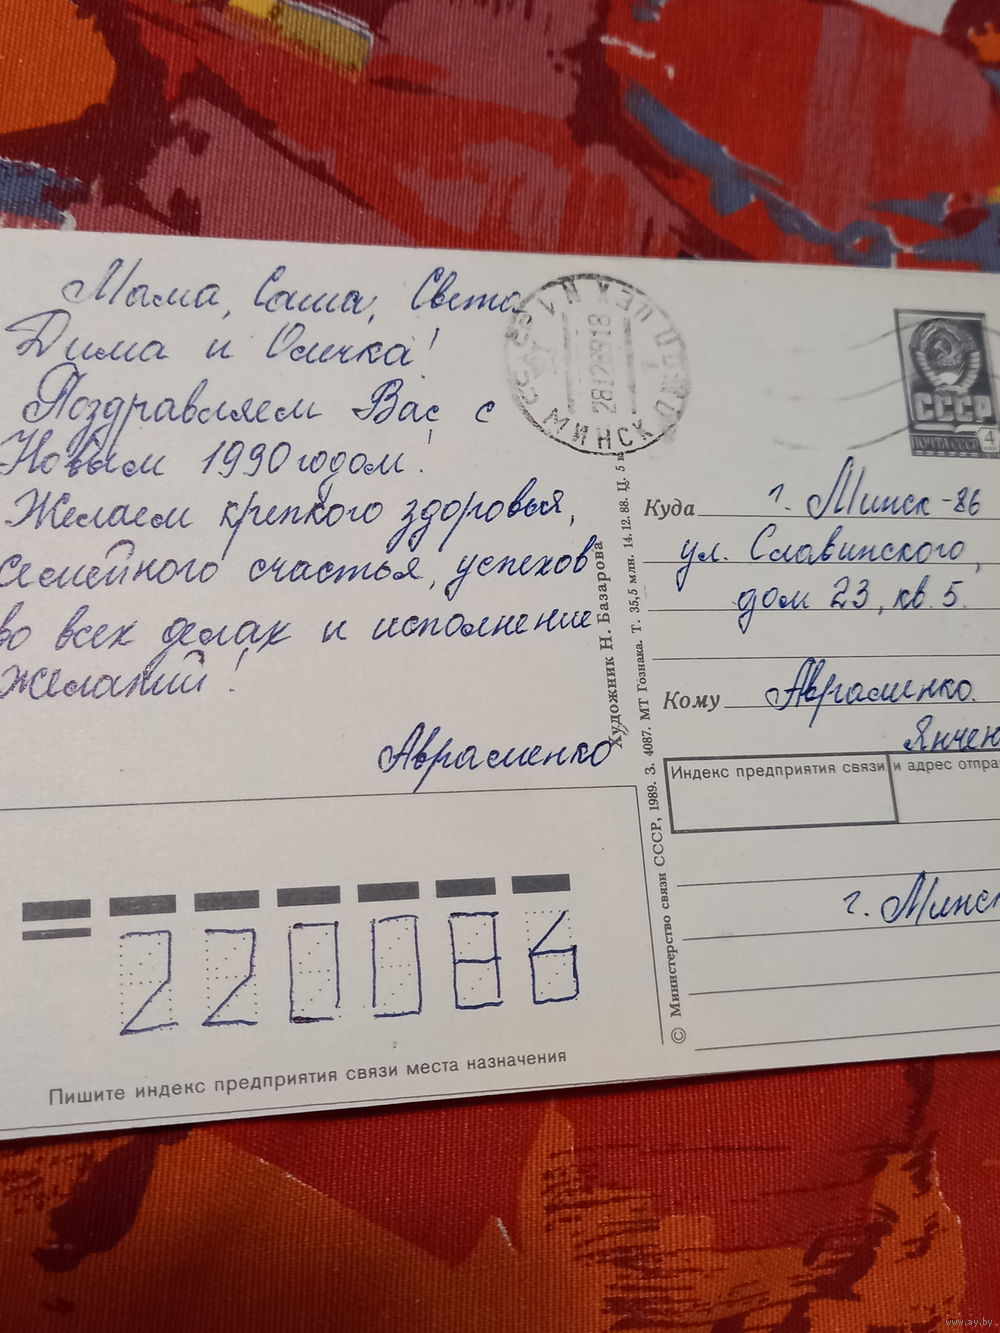 Мама, Саша, Света
Дима и Олечка!
Поздравляем Вас с
Новым 1990 годом!
Желаем крепкого здоровья,
семейного счастья, успехов
во всех делах и исполнение
желаний!
Авраменко
МИНСК
28128918
СССР
ПОЧТА СССР
4
Куда г. Минск-86
ул. Славинского,
дом 23, кв. 5.
Кому Авраменко.
Янчен
Индекс предприятия связи и адрес отпра
г. Минск
Художник Н. Базарова
© Министерство связи СССР, 1989. З. 4087. МТ Гознака. Т. 35,5 млн. 14.12.88. Ц. 5 к
220086
Пишите индекс предприятия связи места назначения
www.ay.by